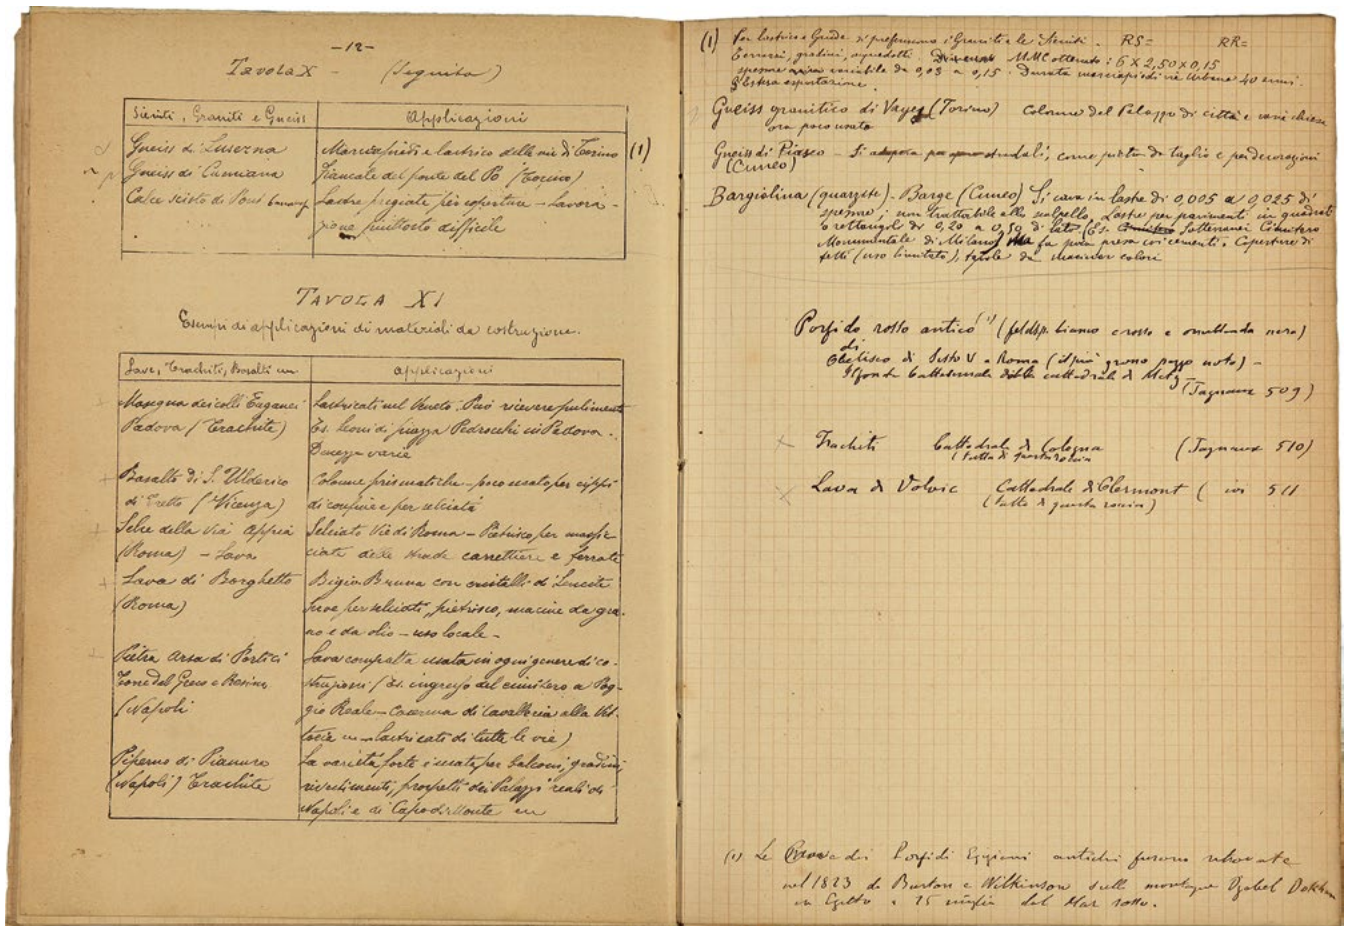 -12-
Tavola X - (Seguito)
Sieniti, Graniti e Gneiss
Applicazioni
Gneiss di Luserna
Marciapiedi e lastrico delle vie di Torino (1)
Gneiss di Cumiana
Fiancate del ponte del Po (Torino)
Calce scisto di Pont
Lastre pregiate per coperture - Lavora-
zione piuttosto difficile
TAVOLA XI
Esempi di applicazioni di materiali da costruzione.
Lave, Trachiti, Basalti
Applicazioni
Masegna dei colli Euganei
Padova (Trachite)
Lastricati nel Veneto. Può ricevere pulimento
Es. Leoni di piazza Pedrocchi in Padova.
Durezza varie
Basalto di S. Ulderico
di Tretto (Vicenza)
Colonne prismatiche - poco usato per cippi
di confine e per selciati
Selce della Via Appia
(Roma) - Lava
Selciato Vie di Roma - Pietrisco per massic-
ciate delle strade carrettiere e ferrate
Lava di Borghetto
(Roma)
Bigio Bruna con cristalli di Leucite
serve per selciati, pietrisco, macine da gra-
no e da olio - uso locale -
Pietra Arsa di Portici
Torre del Greco e Resina
(Napoli
Lava compatta usata in ogni genere di co-
struzioni (Es. ingresso del cimitero a Pog-
gio Reale - Caserma di Cavalleria alla Vit-
toria - lastricati di tutte le vie)
Piperno di Pianura
(Napoli) Trachite
La varietà forte è usata per balconi, gradini,
rivestimenti, prospetti dei Palazzi reali di
Napoli e di Capodimonte
(1) Per lastrico e Guide si preferiscono i Graniti e le Sieniti. RS= RR=
Terrazzi, gradini, acquedotti. MMC ottenuto: 6 X 2,50 X 0,15
spessore variabile da 0,03 a 0,15. Durata marciapiedi vie Urbane 40 anni.
Estesa esportazione
Gneiss granitico di Vayes (Torino) Colonne del Palazzo di città e varie chiese
ora poco usato
Gneiss di Piasco Si adopera per stradali, come pietra da taglio e per decorazioni
(Cuneo)
Bargiolina (quarzite) - Barge (Cuneo) Si cava in lastre di 0,005 a 0,025 di
spessore; non trattabile allo scalpello, Lastre per pavimenti in quadrati
o rettangoli di 0,20 a 0,50 di lato (Es. Cimitero Sotterranei Cimitero
Monumentale di Milano) Ma fa poca presa coi cementi. Coperture di
tetti (uso limitato), tavole da macinar colori
Porfido rosso antico (1) (feldsp. bianco e rosso e orneblenda nera)
di
Obelisco di Sisto V a Roma (il più grosso pezzo noto) -
cattedrale di Metz
(Jagnaux 509)
Trachiti Cattedrale di Cologna (Jagnaux 510)
(tutta di questa roccia
Lava di Volvic Cattedrale di Clermont ( ivi 511
(tutta di questa roccia)
(1) Le Cave dei Porfidi Egiziani antichi furono ritrovate
nel 1823 da Burton e Wilkinson sulle montagne Djebel Dokhan
in Egitto a 25 miglia dal Mar rosso.